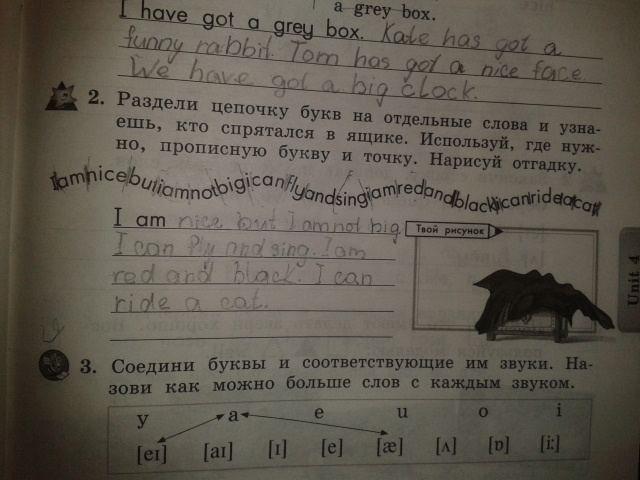 a grey box.
I have got a grey box. Kate has got a
funny rabbit. Tom has got a nice face
We have got a big clock.
2. Раздели цепочку букв на отдельные слова и узна-
ешь, кто спрятался в ящике. Используй, где нуж-
но, прописную букву и точку. Нарисуй отгадку.
Iamnicebutiamnotbigicanflyandsingiamredandblackicanrideacat
I am nice but I am not big
Твой рисунок
I can fly and sing. I am
red and black. I can
ride a cat.
Unit 4
3. Соедини буквы и соответствующие им звуки. На-
зови как можно больше слов с каждым звуком.
y a e u o i
[eɪ] [aɪ] [ɪ] [e] [æ] [ʌ] [ɒ] [i:]